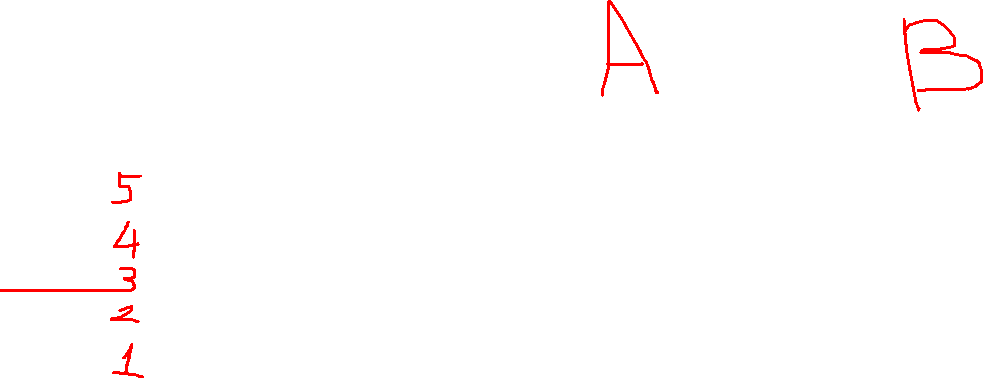 A B
5
4
3
2
1